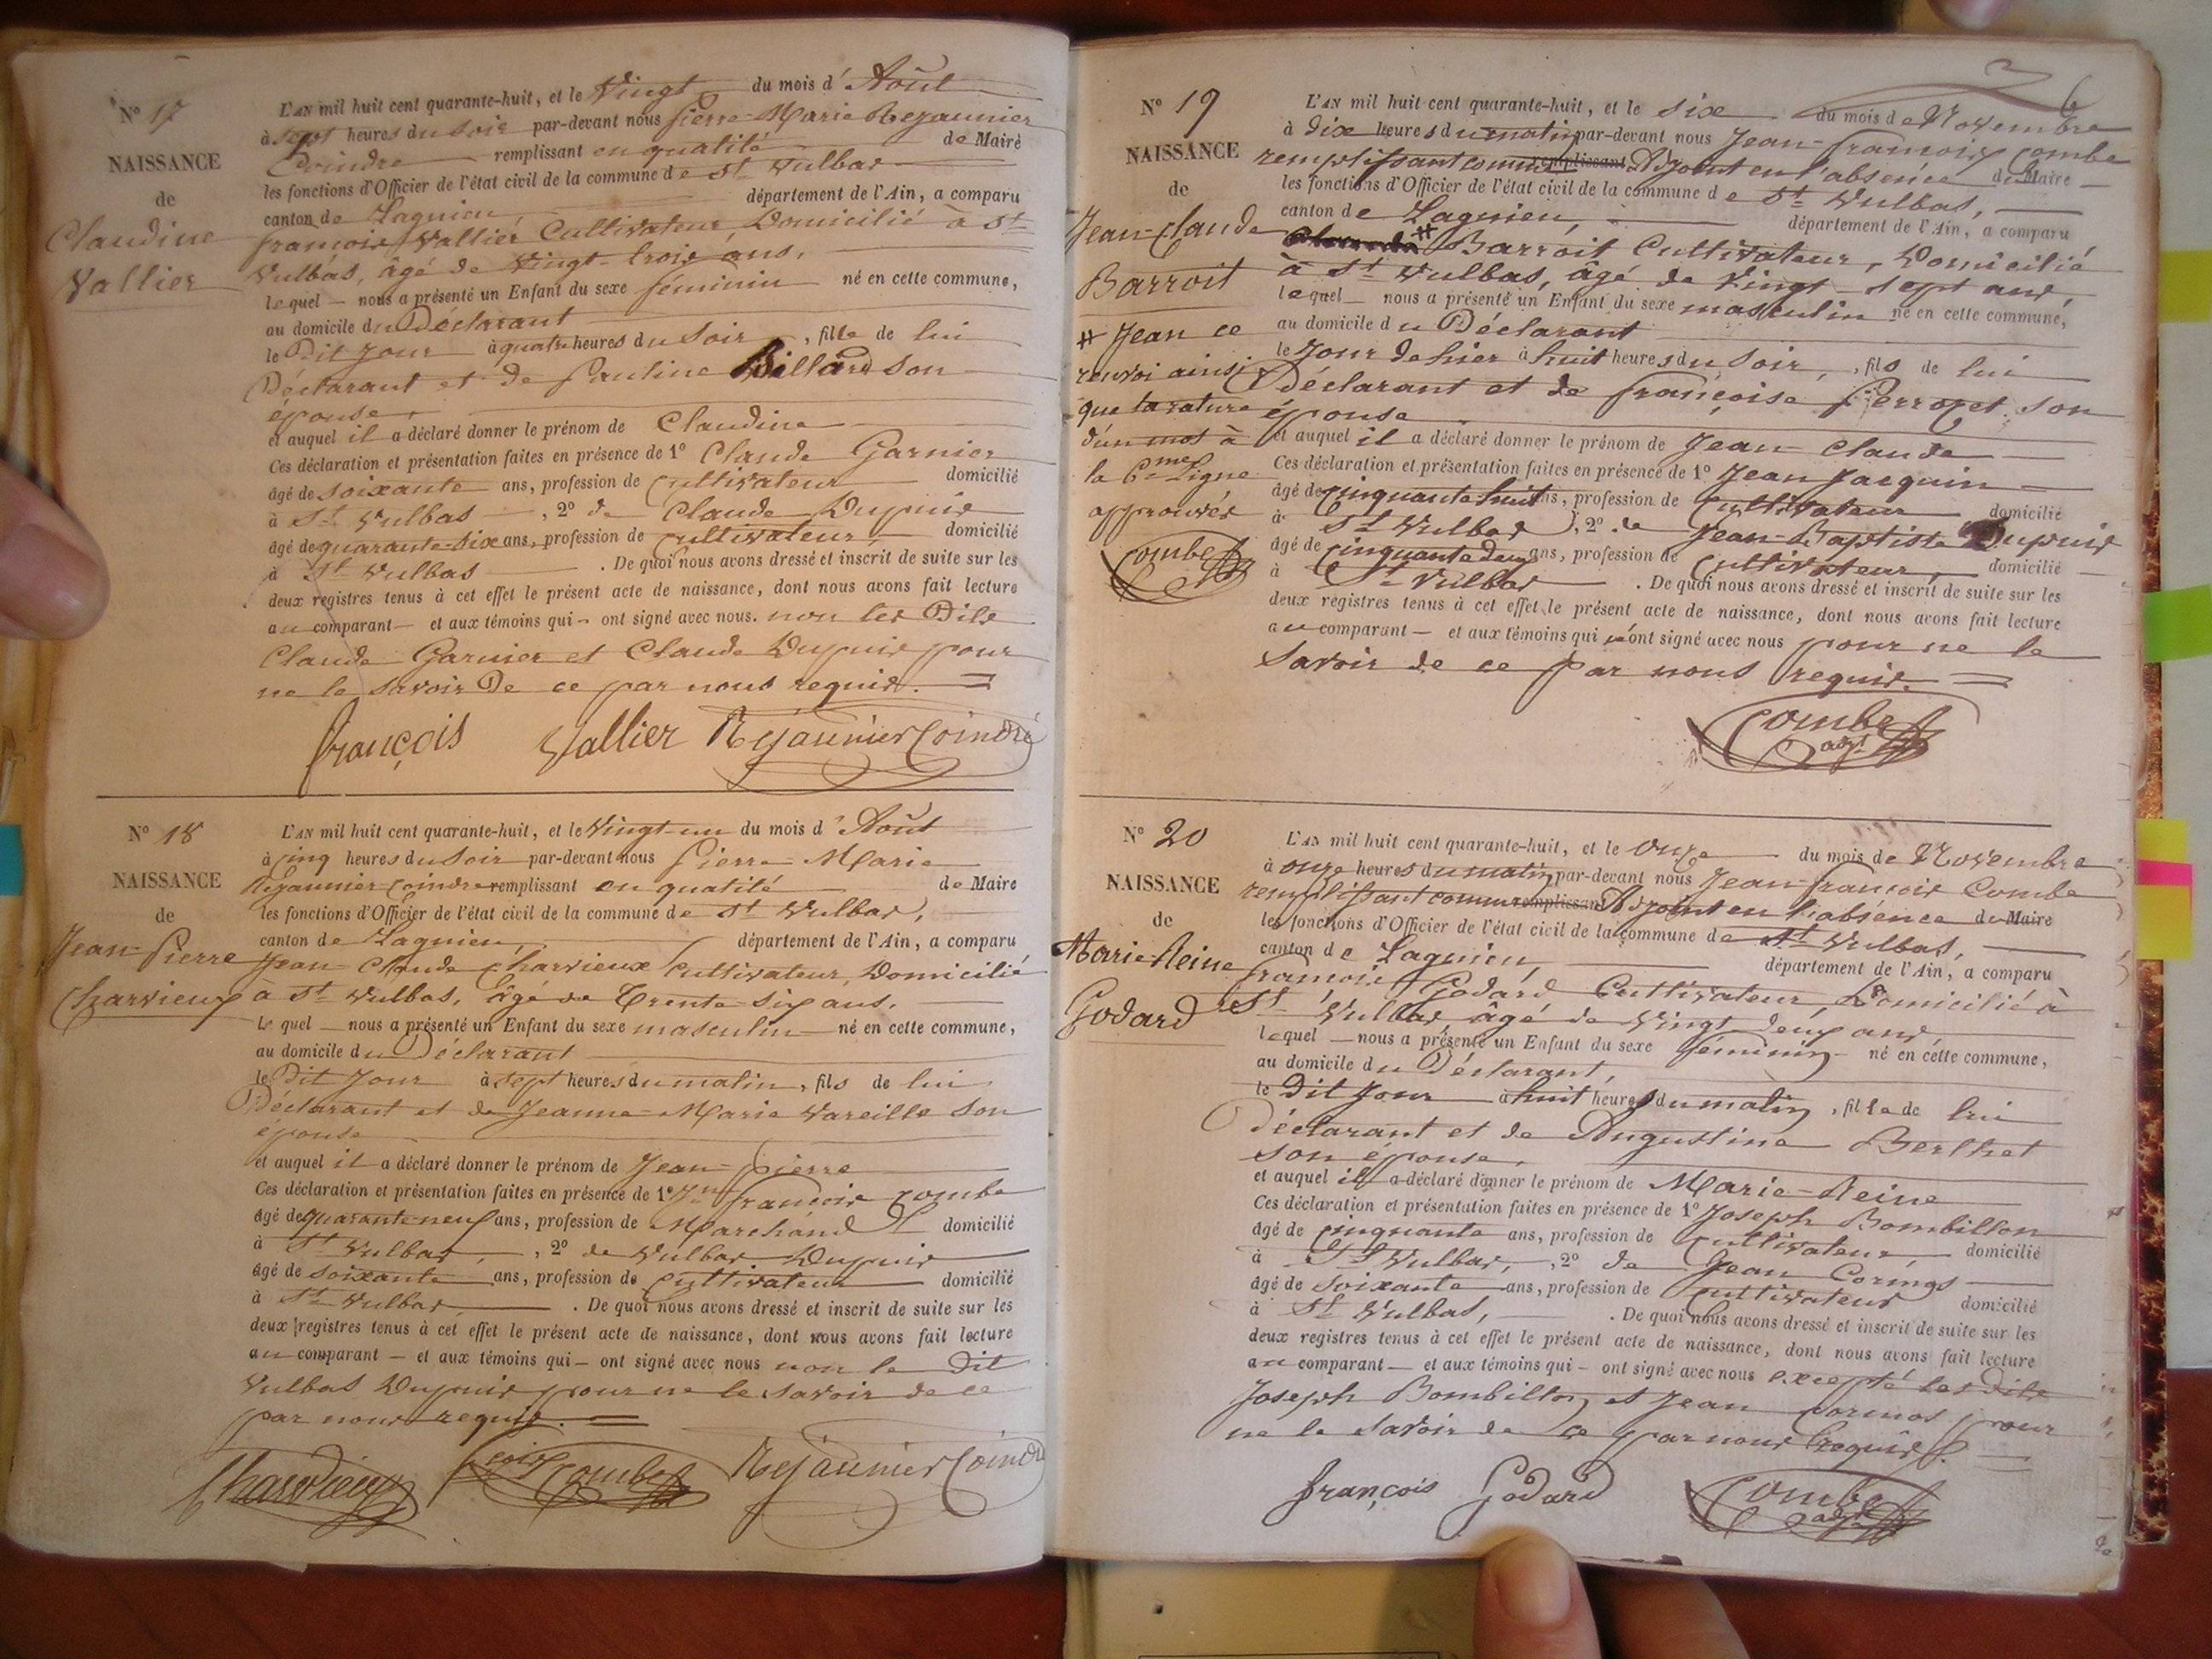 N° 17
NAISSANCE
de
Claudine
Vallier
L'AN mil huit cent quarante-huit, et le Vingt du mois d'Août
à sept heures du soir par-devant nous pierre-Marie Rejaunier
Coindre remplissant en qualité de Maire
les fonctions d'Officier de l'état civil de la commune de St Vulbas
canton de Lagnieu département de l'Ain, a comparu
françois Vallier Cultivateur, Domicilié à St
Vulbas, âgé de Vingt-trois ans,
lequel nous a présenté un Enfant du sexe féminin né en cette commune,
au domicile du Déclarant
le Dit jour à quatre heures du Soir, fille de lui
Déclarant et de Pauline Billard son
épouse,
et auquel il a déclaré donner le prénom de Claudine
Ces déclaration et présentation faites en présence de 1° Claude Garnier
âgé de soixante ans, profession de Cultivateur domicilié
à St Vulbas, 2° de Claude Dupuis
âgé de quarante-six ans, profession de Cultivateur, domicilié
à St Vulbas. De quoi nous avons dressé et inscrit de suite sur les
deux registres tenus à cet effet le présent acte de naissance, dont nous avons fait lecture
au comparant et aux témoins qui ont signé avec nous. non les Dits
Claude Garnier et Claude Dupuis pour
ne le savoir De ce par nous requis.
françois Vallier Rejaunier Coindre
N° 18
NAISSANCE
de
Jean-Pierre
Charvieux
L'AN mil huit cent quarante-huit, et le Vingt-un du mois d'Août
à cinq heures du Soir par-devant nous Pierre-Marie
Rejaunier Coindre remplissant en qualité de Maire
les fonctions d'Officier de l'état civil de la commune de St Vulbas,
canton de Lagnieu, département de l'Ain, a comparu
Jean-Claude Charvieux Cultivateur, Domicilié
à St Vulbas, âgé de Trente-six ans,
Lequel nous a présenté un Enfant du sexe masculin né en cette commune,
au domicile du Déclarant
le Dit Jour à sept heures du matin, fils de lui
Déclarant et de Jeanne-Marie Vareille son
épouse
et auquel il a déclaré donner le prénom de Jean-pierre
Ces déclaration et présentation faites en présence de 1° Jn françois Combe
âgé de quarante-neuf ans, profession de Marchand domicilié
à St Vulbas, 2° de Vulbas Dupuis
âgé de soixante ans, profession de Cultivateur domicilié
à St Vulbas. De quoi nous avons dressé et inscrit de suite sur les
deux registres tenus à cet effet le présent acte de naissance, dont nous avons fait lecture
au comparant et aux témoins qui ont signé avec nous non le Dit
Vulbas Dupuis pour ne le savoir de ce
par nous requis.
Charvieux Combe Rejaunier Coindre
6
N° 19
NAISSANCE
de
Jean-Claude
Barroit
# Jean ce
renvoi ainsi
que la rature
d'un mot à
la 6me Ligne
approuvés
Combe
L'AN mil huit cent quarante-huit, et le six du mois de Novembre
à dix heures du matin par-devant nous Jean-francois Combe
remplissant comme remplissant Adjoint en l'absence du Maire
les fonctions d'Officier de l'état civil de la commune de St Vulbas,
canton de Lagnieu, département de l'Ain, a comparu
# Barroit Cultivateur, Domicilié
à St Vulbas, âgé de Vingt-sept ans,
lequel nous a présenté un Enfant du sexe masculin né en cette commune,
au domicile du Déclarant
le Jour de hier à huit heures du Soir, fils de lui
Déclarant et de françoise Perrozet son
épouse
et auquel il a déclaré donner le prénom de Jean-Claude
Ces déclaration et présentation faites en présence de 1° Jean Jacquin
âgé de Cinquante-huit ans, profession de Cultivateur domicilié
à St Vulbas, 2° de Jean-Baptiste Dupuis
âgé de Cinquante deux ans, profession de Cultivateur, domicilié
à St Vulbas. De quoi nous avons dressé et inscrit de suite sur les
deux registres tenus à cet effet le présent acte de naissance, dont nous avons fait lecture
au comparant et aux témoins qui n'ont signé avec nous pour ne le
savoir de ce par nous requis.
Combe
adjt
N° 20
NAISSANCE
de
Marie-Reine
Godard
L'AN mil huit cent quarante-huit, et le Onze du mois de Novembre
à onze heures du matin par-devant nous Jean-francois Combe
remplissant comme remplissant Adjoint en l'absence du Maire
les fonctions d'Officier de l'état civil de la commune de St Vulbas,
canton de Lagnieu, département de l'Ain, a comparu
francois Godard Cultivateur, Domicilié à
St Vulbas âgé de Vingt deux ans,
lequel nous a présenté un Enfant du sexe féminin né en cette commune,
au domicile du Déclarant,
le Dit Jour à huit heures du matin, fille de lui
Déclarant et de Augustine Berthet
son épouse,
et auquel il a déclaré donner le prénom de Marie-Reine
Ces déclaration et présentation faites en présence de 1° Joseph Bombillon
âgé de Cinquante ans, profession de Cultivateur domicilié
à St Vulbas, 2° de Jean Cormos
âgé de Soixante ans, profession de Cultivateur domicilié
à St Vulbas, . De quoi nous avons dressé et inscrit de suite sur les
deux registres tenus à cet effet le présent acte de naissance, dont nous avons fait lecture
au comparant et aux témoins qui ont signé avec nous excepté les Dits
Joseph Bombillon et Jean Cormos pour
ne le savoir de ce par nous requis.
françois Godard Combe
adjt